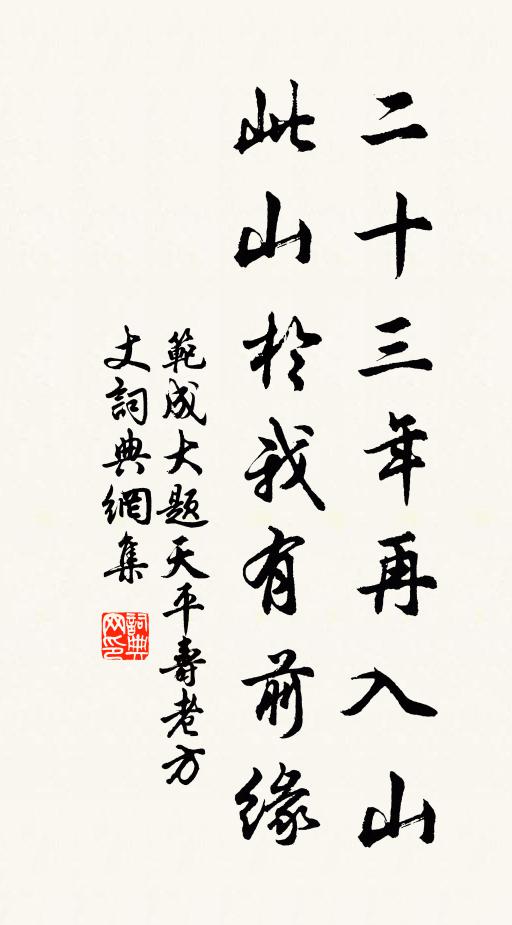 二十三年再入山
此山於我有前緣
範成大题天平壽老方
丈詞典網集
詞典
网印